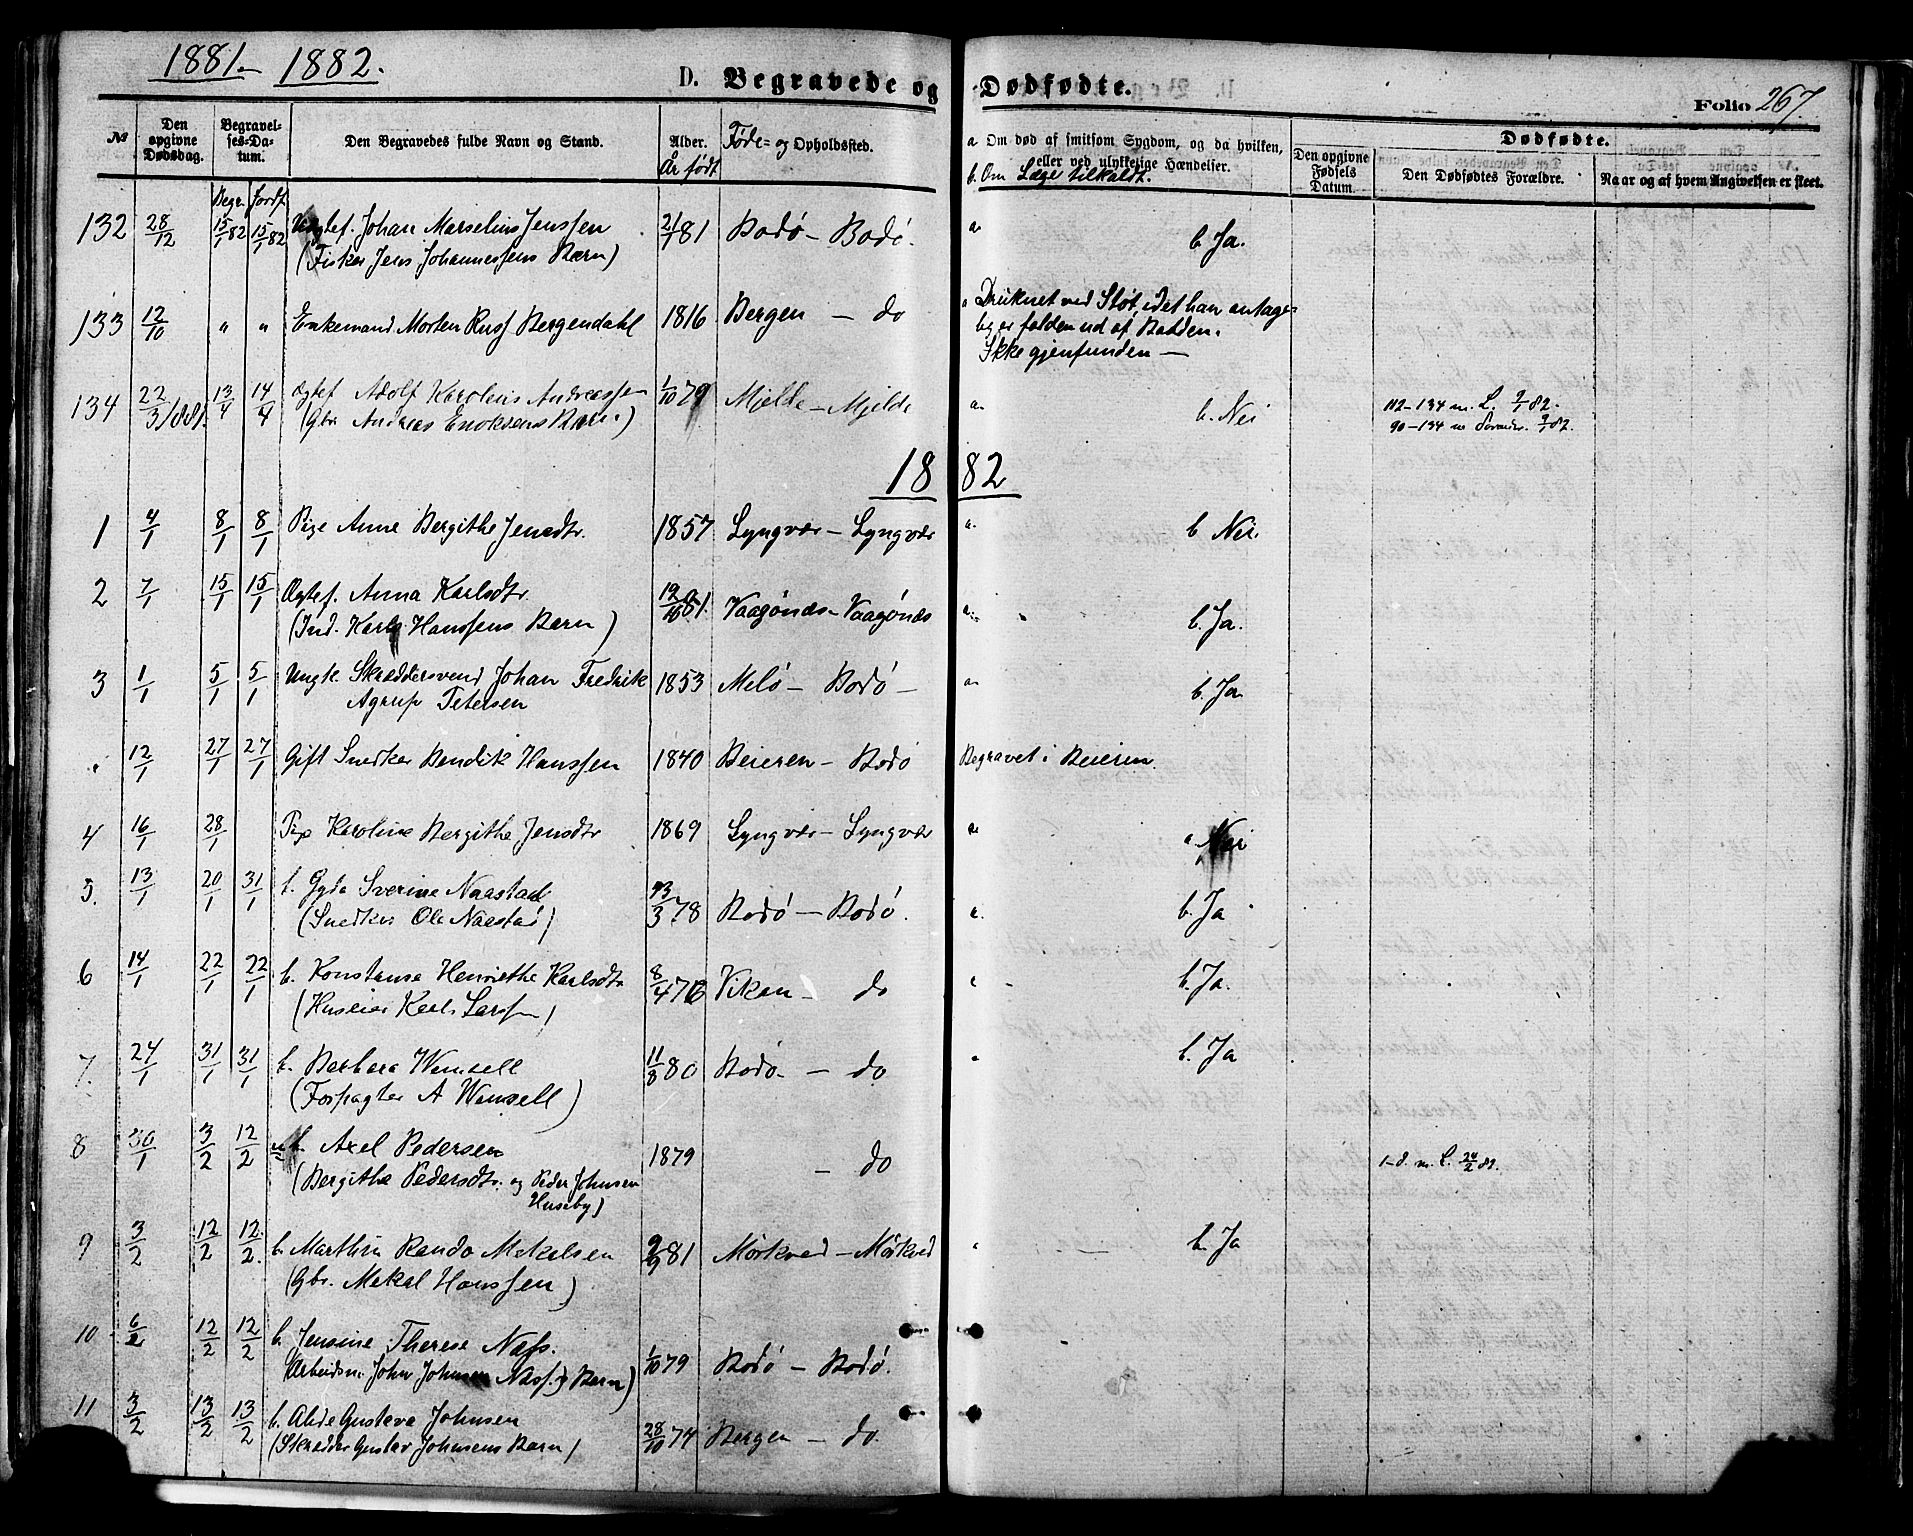 1881. 1882.
D. Begravede og Dødfødte.
Folio 267.
№
Den opgivne Dødsdag.
Begravelses-Datum.
Den Begravedes fulde Navn og Stand.
Alder.
År født
Føde- og Opholdssted.
a Om død af smitsom Sygdom, og da hvilken, eller ved ulykkelige Hændelser.
b. Om Læge tilkaldt.
Dødfødte.
Den opgivne Fødsels Datum.
Den Dødfødtes Forældre.
Naar og af hvem Angivelsen er skeet.
Begr. Jordf.
132 28/12 15/1 82 15/1 82 Uægtef. Johan Marselius Jenssen 2/1 81 Bodø - Bodø. a b. Ja.
(Fisker Jens Johannessens Barn)
133 12/10 " " Enkemand Morten Russ Bergendahl 1816 Bergen - do a Druknet ved Støt, idet han antage-
lig er falden ud af Baaden.
Ikke gjenfunden -
134 22/3 1881. 13/4 14/4 Ægtef Adolf Karolius Andreassen 1/10 79 Mjelde - Mjelde a. b. Nei 112-134 m. L. 9/1 82.
(Gbr Andreas Enoksens Barn.) 90-134 m 9/1 82.
1882
1 4/1 8/1 8/1 Pige Anne Bergithe Jensdtr. 1857 Lyngvær - Lyngvær a. b Nei.
2 7/1 15/1 15/1 Ægtef. Anna Karlsdtr. 81. Vaagønæs - Vaagønæs a. b. Ja.
(Ind. Karl Hanssens Barn)
3 1/1 5/1 5/1 Ungk Skræddersvend Johan Fredrik 1853 Melø - Bodø - a. b. Ja
Agrup Petersen
12/1 27/1 27/1 Gift Snedker Bendik Hanssen 1840 Beieren - Bodø Begravet i Beieren.
4 16/1 28/1 Pige Karoline Bergithe Jensdtr 1869 Lyngvær - Lyngvær a Nei
5. 13/1 20/1 31/1 b. Gyda Sverine Naastad 3 78 Bodø - Bodø. a. b. Ja
(Snedker Ole Naastad)
6 14/1 22/1 22/1 b. Konstanse Henriethe Karlsdtr 8/4 76 Vikan - do b. Ja.
(Huseier Karl Larssen)
7. 24/1 31/1 31/1 b. Barbara Wensell 11/8 80 Bodø - do b. Ja
(Forpagter A Wensell)
8 30/1 3/2 12/2 u b. Axel Pedersen 1879 - do 1-8. m. L. 24/2 82.
(Bergithe Pedersdtr. og Peder Johnsen
Huseby)
9 3/2 12/2 12/2. b Marthin Rando Mekalsen 9/9 81 Mørkved - Mørkved b. Ja
(Gbr. Mekal Hanssen)
10 6/2 12/2 12/2 b Jensine Therese Næss. 1/10 79 Bodø - Bodø.
Arbeidsm. John Johnsen Næss.) Barn)
11 3/2 13/2 13/2 b. Alide Gustava Johnsen 28/10 74 Bergen - do.
(Skrædder Gustav Johnsens Barn)